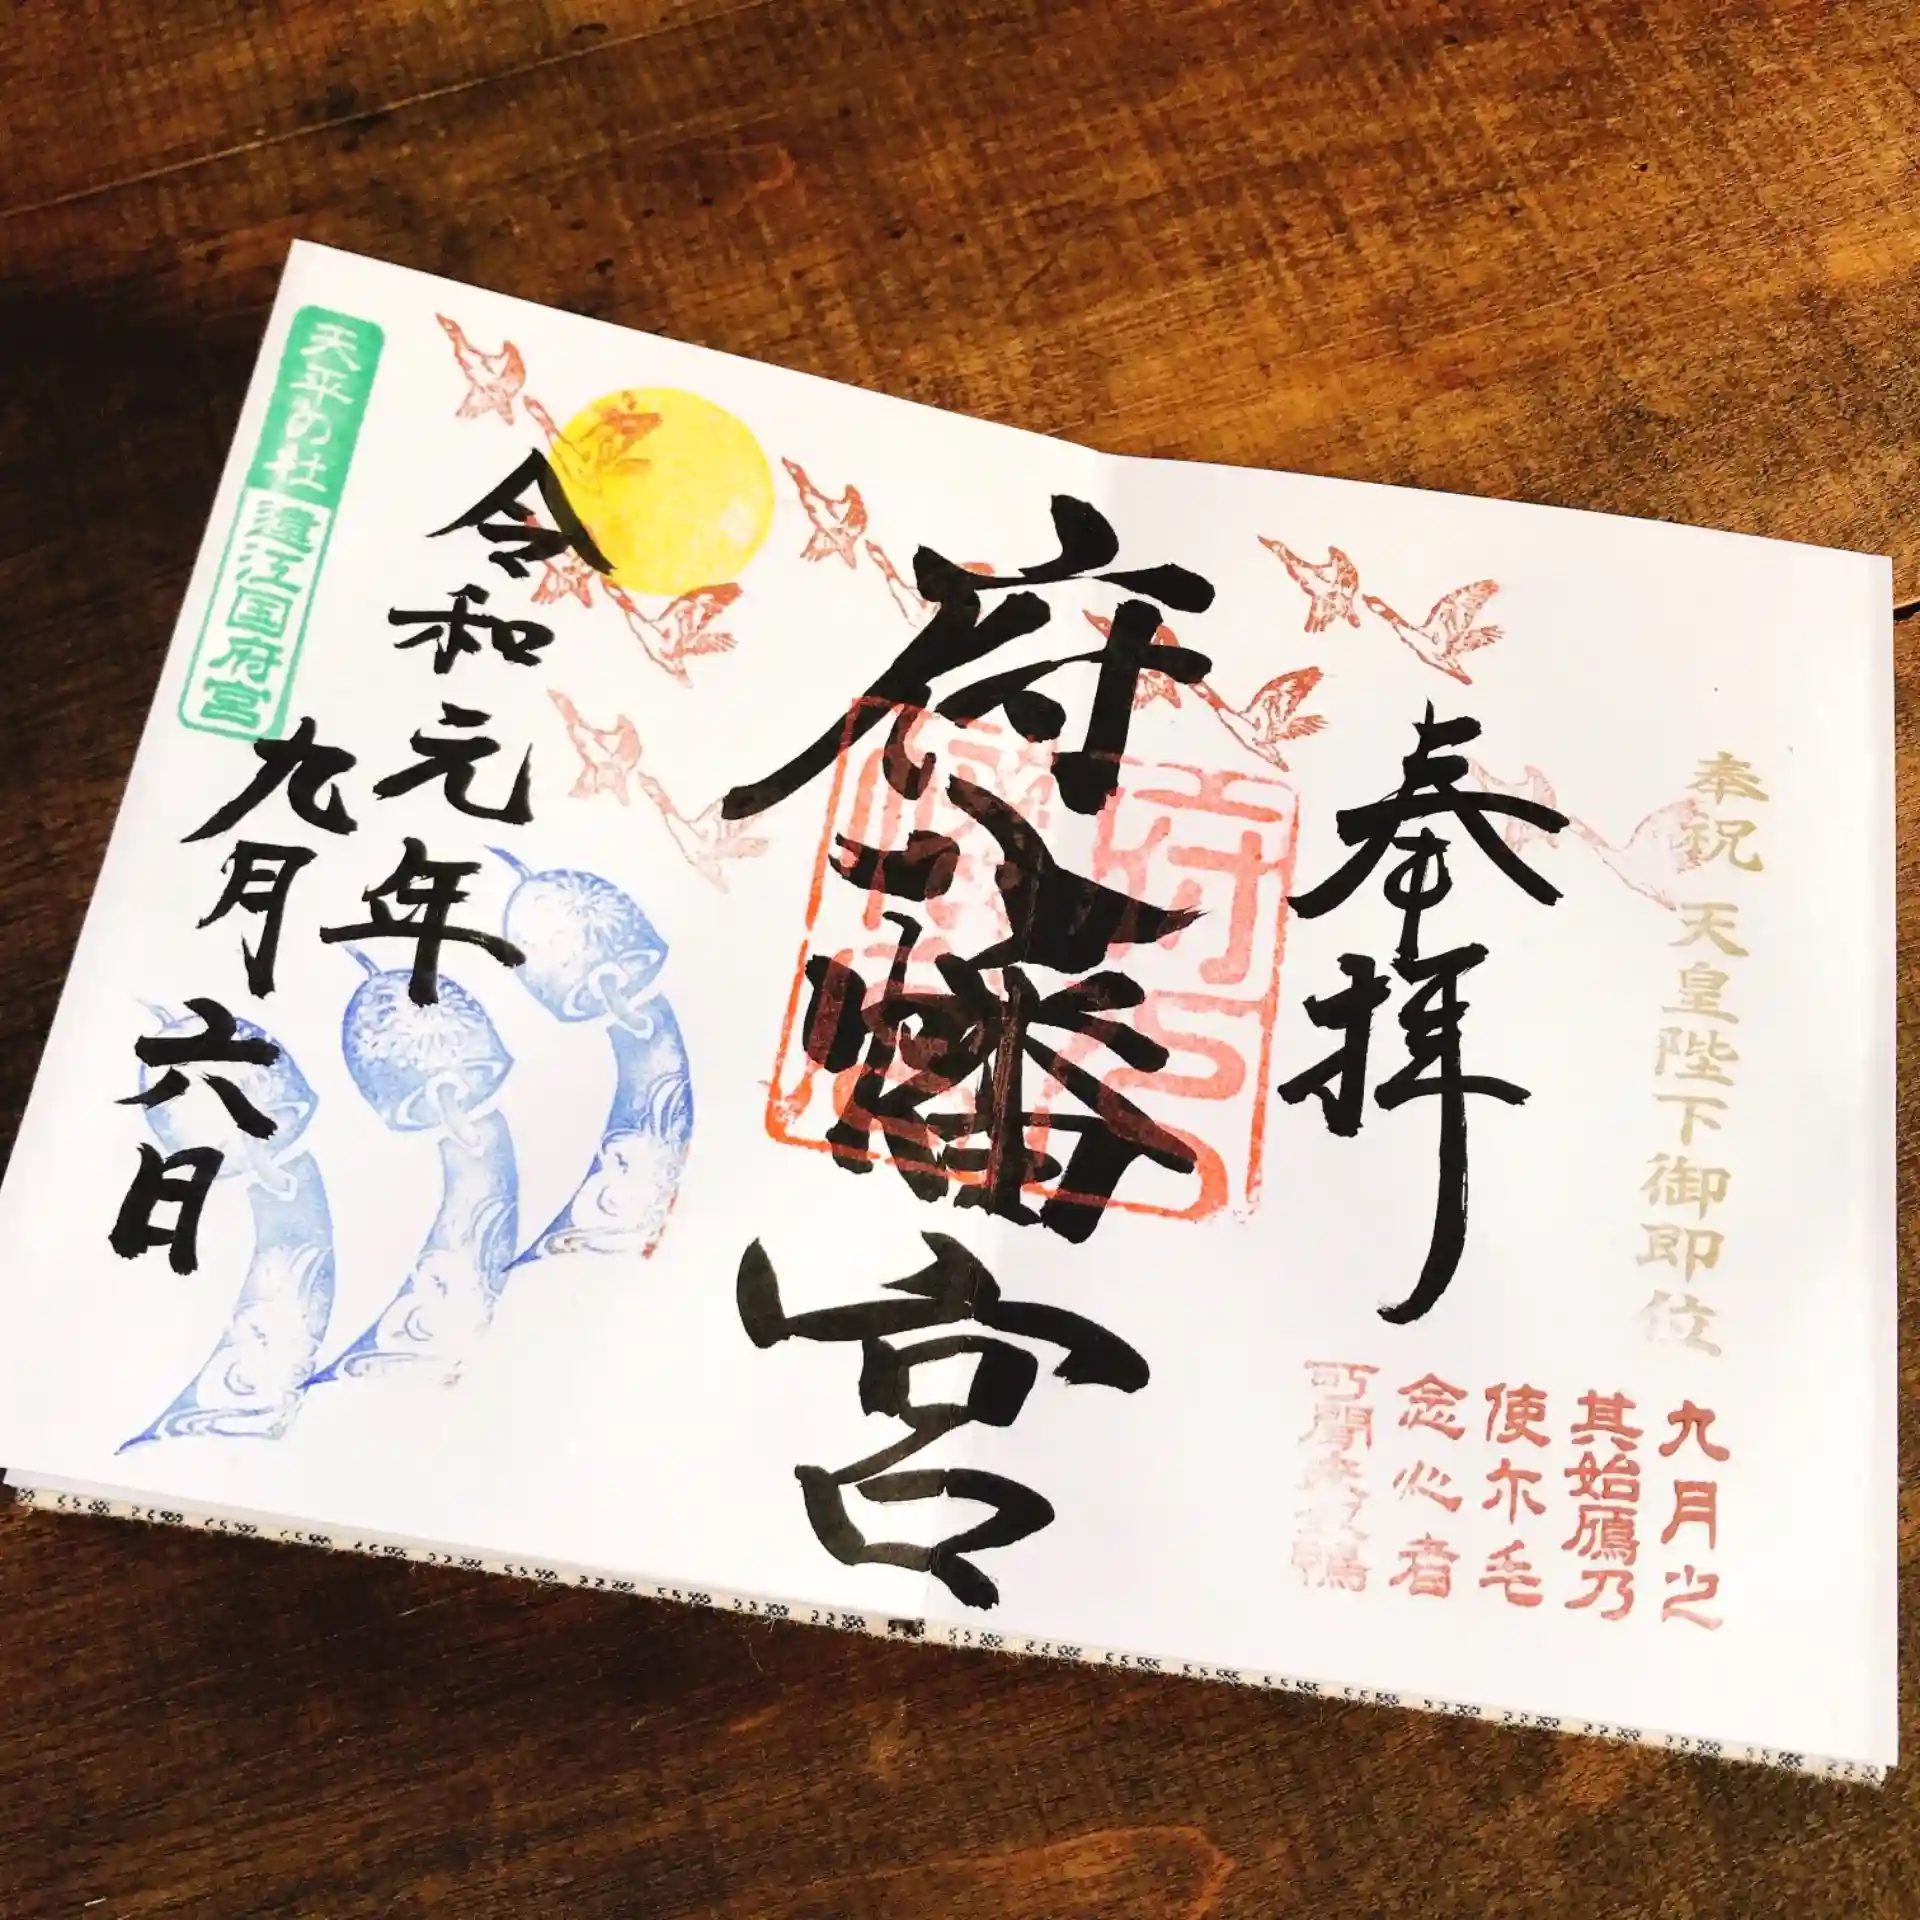 奉祝 天皇陛下御即位
九月之
其始鴈乃
使尓毛
念心者
可聞来奴鴨
奉拝
府八幡宮
令和元年
九月六日
天平の社
遠江国府宮